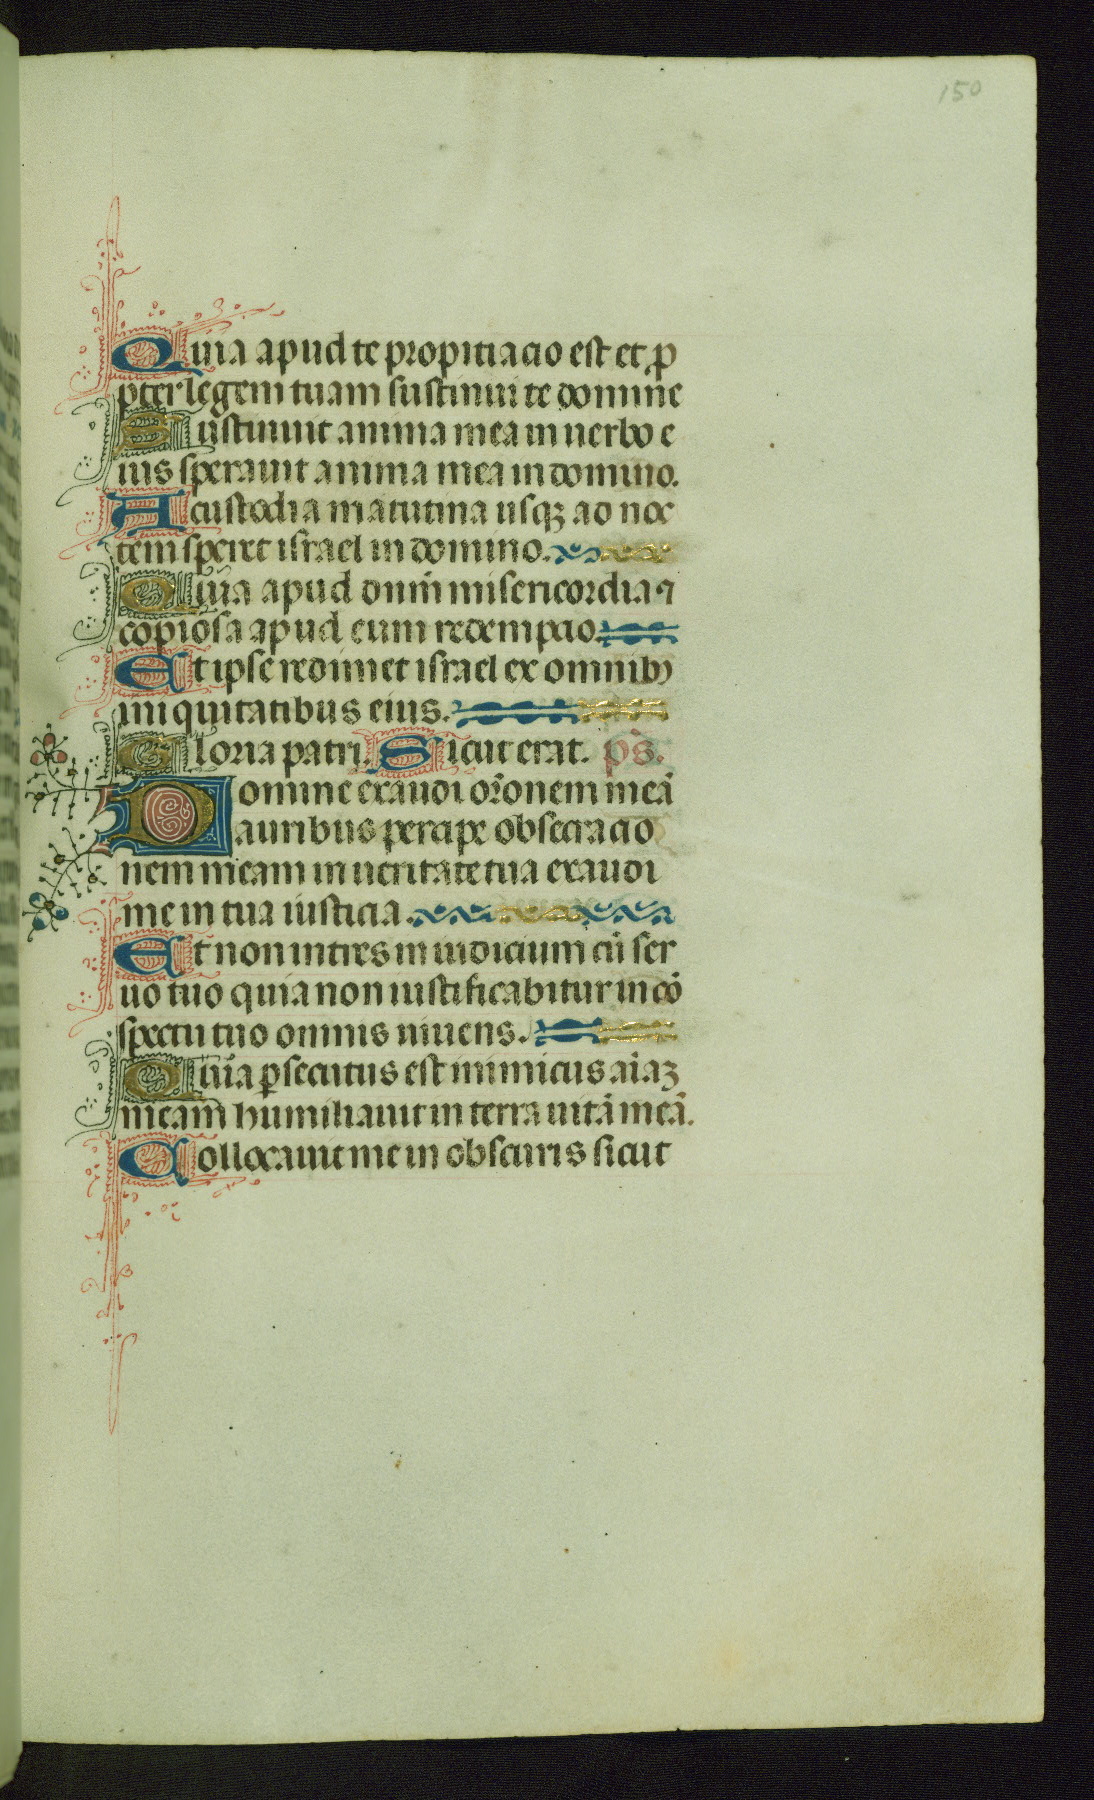 150
Quia apud te propitiacio est et p̱
pter legem tuam sustinui te domine
Sustinuit anima mea in uerbo e
ius sperauit anima mea in domino.
A custodia matutina usqꝫ ad noc
tem speret israel in domino.
Quia apud dnm̄ misericordia ⁊
copiosa apud eum redempcio.
Et ipse redimet israel ex omnibꝫ
iniquitatibus eius.
Gloria patri. Sicut erat. ps̄.
Domine exaudi or̄onem meā
auribus percipe obsecracio
nem meam in ueritate tua exaudi
me in tua iusticia.
Et non intres in iudicium cū ser
uo tuo quia non iustificabitur in cō
spectu tuo omnis uiuens.
Quia ꝑsecutus est inimicus aīaꝫ
meam humiliauit in terra uitā meā.
Collocauit me in obscuris sicut